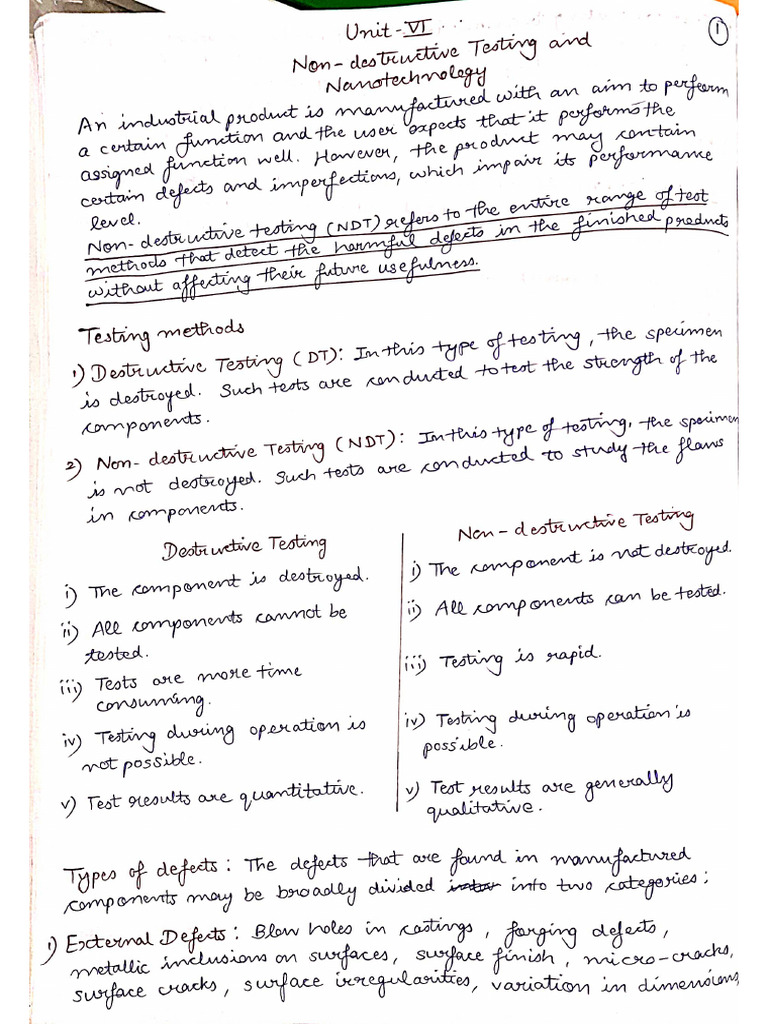 Unit-VI
1
Non-destructive Testing and
Nanotechnology
An industrial product is manufactured with an aim to perform
a certain function and the user expects that it performs the
assigned function well. However, the product may contain
certain defects and imperfections, which impair its performance
level.
Non-destructive testing (NDT) refers to the entire range of test
methods that detect the harmful defects in the finished products
without affecting their future usefulness.
Testing methods
1) Destructive Testing (DT): In this type of testing, the specimen
is destroyed. Such tests are conducted to test the strength of the
components.
2) Non-destructive Testing (NDT): In this type of testing, the specimen
is not destroyed. Such tests are conducted to study the flaws
in components.
Destructive Testing
i) The component is destroyed.
ii) All components cannot be
tested.
iii) Tests are more time
consuming.
iv) Testing during operation is
not possible.
v) Test results are quantitative.
Non-destructive Testing
i) The component is not destroyed.
ii) All components can be tested.
iii) Testing is rapid.
iv) Testing during operation is
possible.
v) Test results are generally
qualitative.
Types of defects: The defects that are found in manufactured
components may be broadly divided into two categories:
1) External Defects: Blow holes in castings, forging defects,
metallic inclusions on surfaces, surface finish, micro-cracks,
surface cracks, surface irregularities, variation in dimensions,